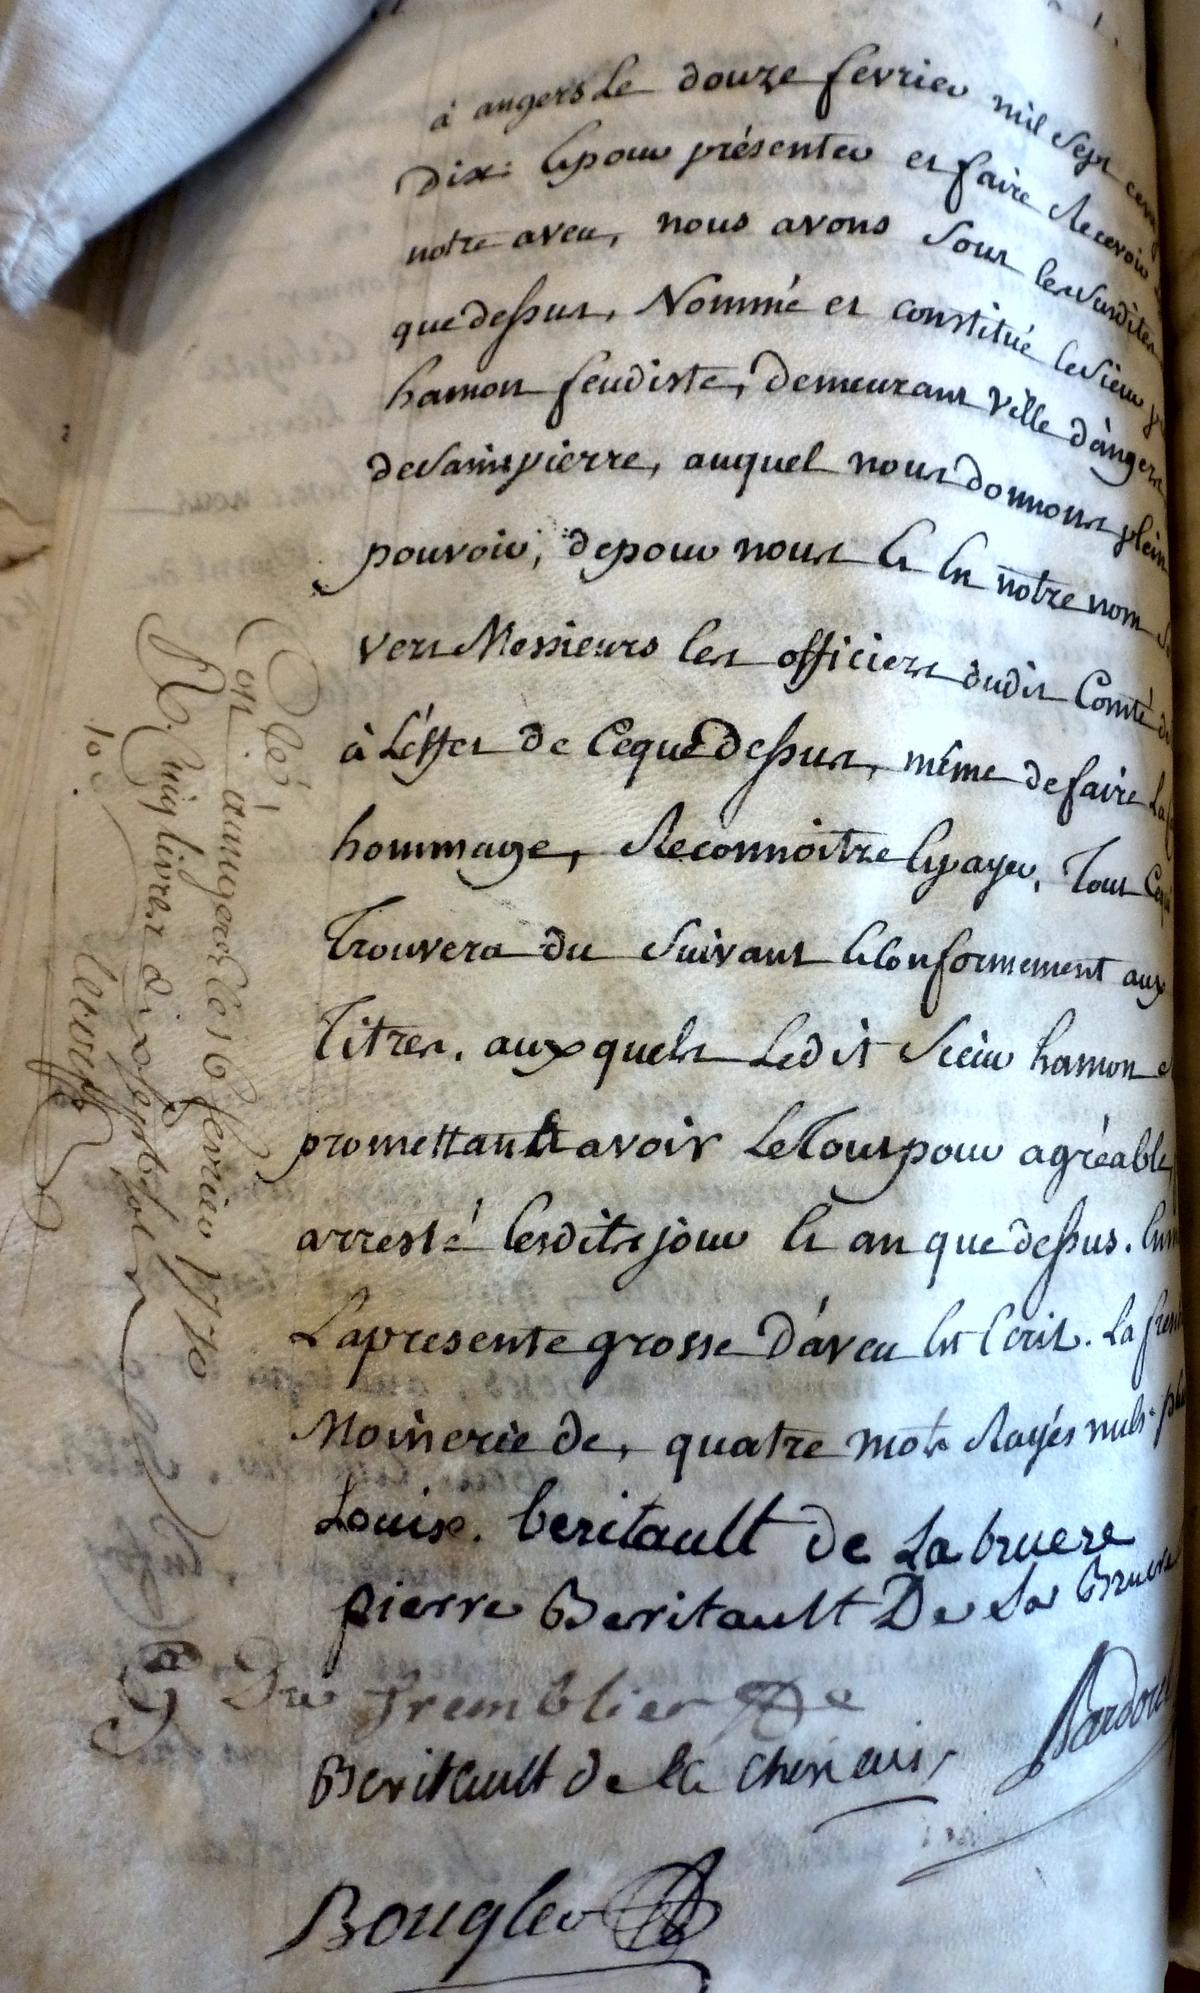 à angers Le douze fevrier mil Sept cent
Dix: Et pour présenter et faire Recevoir
notre aveu, nous avons Sous les susdites
que dessus, Nommé et constitué le Sieur
hamon feudiste, demeurant ville d'angers
de Saint pierre, auquel nous donnons plein
pouvoir, de pour nous Et En notre nom
vers Messieurs les officiers dudit Comté de
à L'effet de Ceque dessus, même de faire La
hommage, Reconnoitre Et payer, Tout Ce qui
Trouvera du Suivant Et Conformement aux
Titres, aux quels Ledit Sieur hamon
promettant avoir Le Tout pour agréable
arresté Lesdits jour Et an que dessus.
La presente grosse D'aveu Est Ecrit. La
Moinerie de, quatre mots Rayés nuls
Louise. beritault de La bruere
pierre Beritault De La Bruere
Du Tremblier De
Beritault de la chenaie
Bardoul
Bougler
Con à angers le 16 fevrier 1770
R. cinq livres dix sept sols